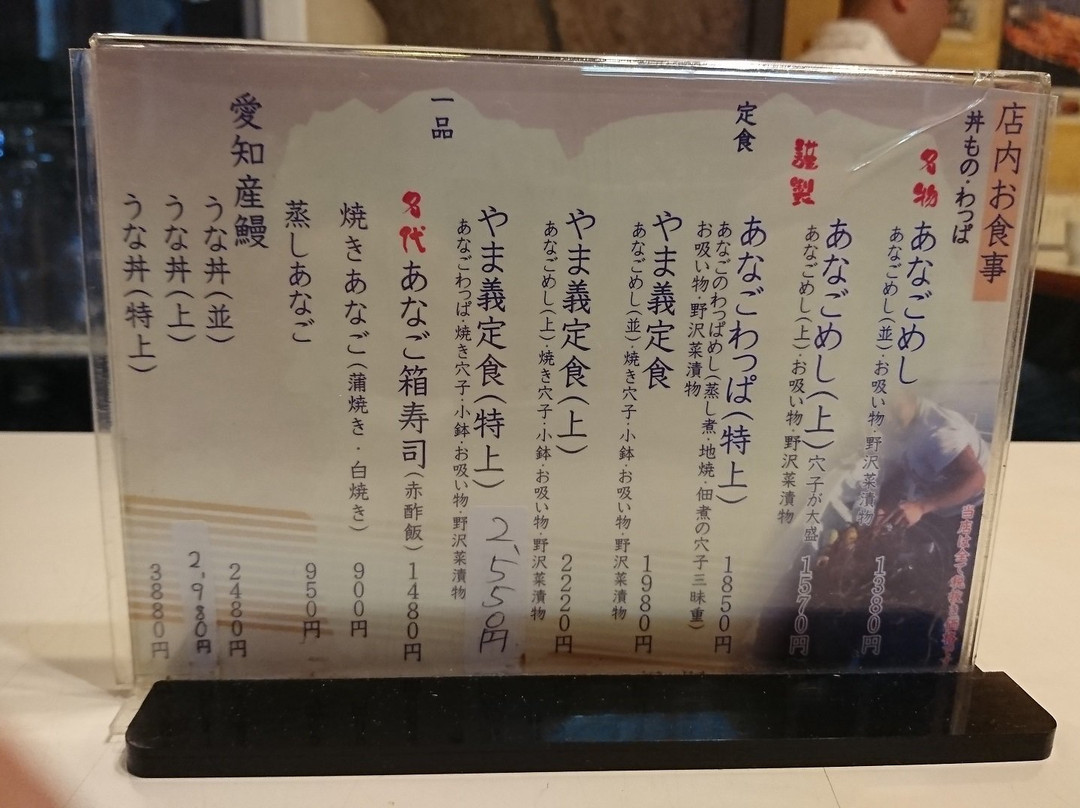 店内お食事
丼もの・わっぱ
名物 あなごめし 1380円
あなごめし(並)・お吸い物・野沢菜漬物
謹製 あなごめし(上) 穴子が大盛 1570円
あなごめし(上)・お吸い物・野沢菜漬物
あなごわっぱ(特上) 1850円
あなごのわっぱめし(蒸し煮・地焼・佃煮の穴子三昧重)
お吸い物・野沢菜漬物
定食
やま義定食 1980円
あなごめし(並)・焼き穴子・小鉢・お吸い物・野沢菜漬物
やま義定食(上) 2220円
あなごめし(上)・焼き穴子・小鉢・お吸い物・野沢菜漬物
やま義定食(特上) 2,550円
あなごわっぱ・焼き穴子・小鉢・お吸い物・野沢菜漬物
一品
名代 あなご箱寿司(赤酢飯) 1480円
焼きあなご(蒲焼き・白焼き) 900円
蒸しあなご 950円
愛知産鰻
うな丼(並) 2480円
うな丼(上) 2,980円
うな丼(特上) 3880円